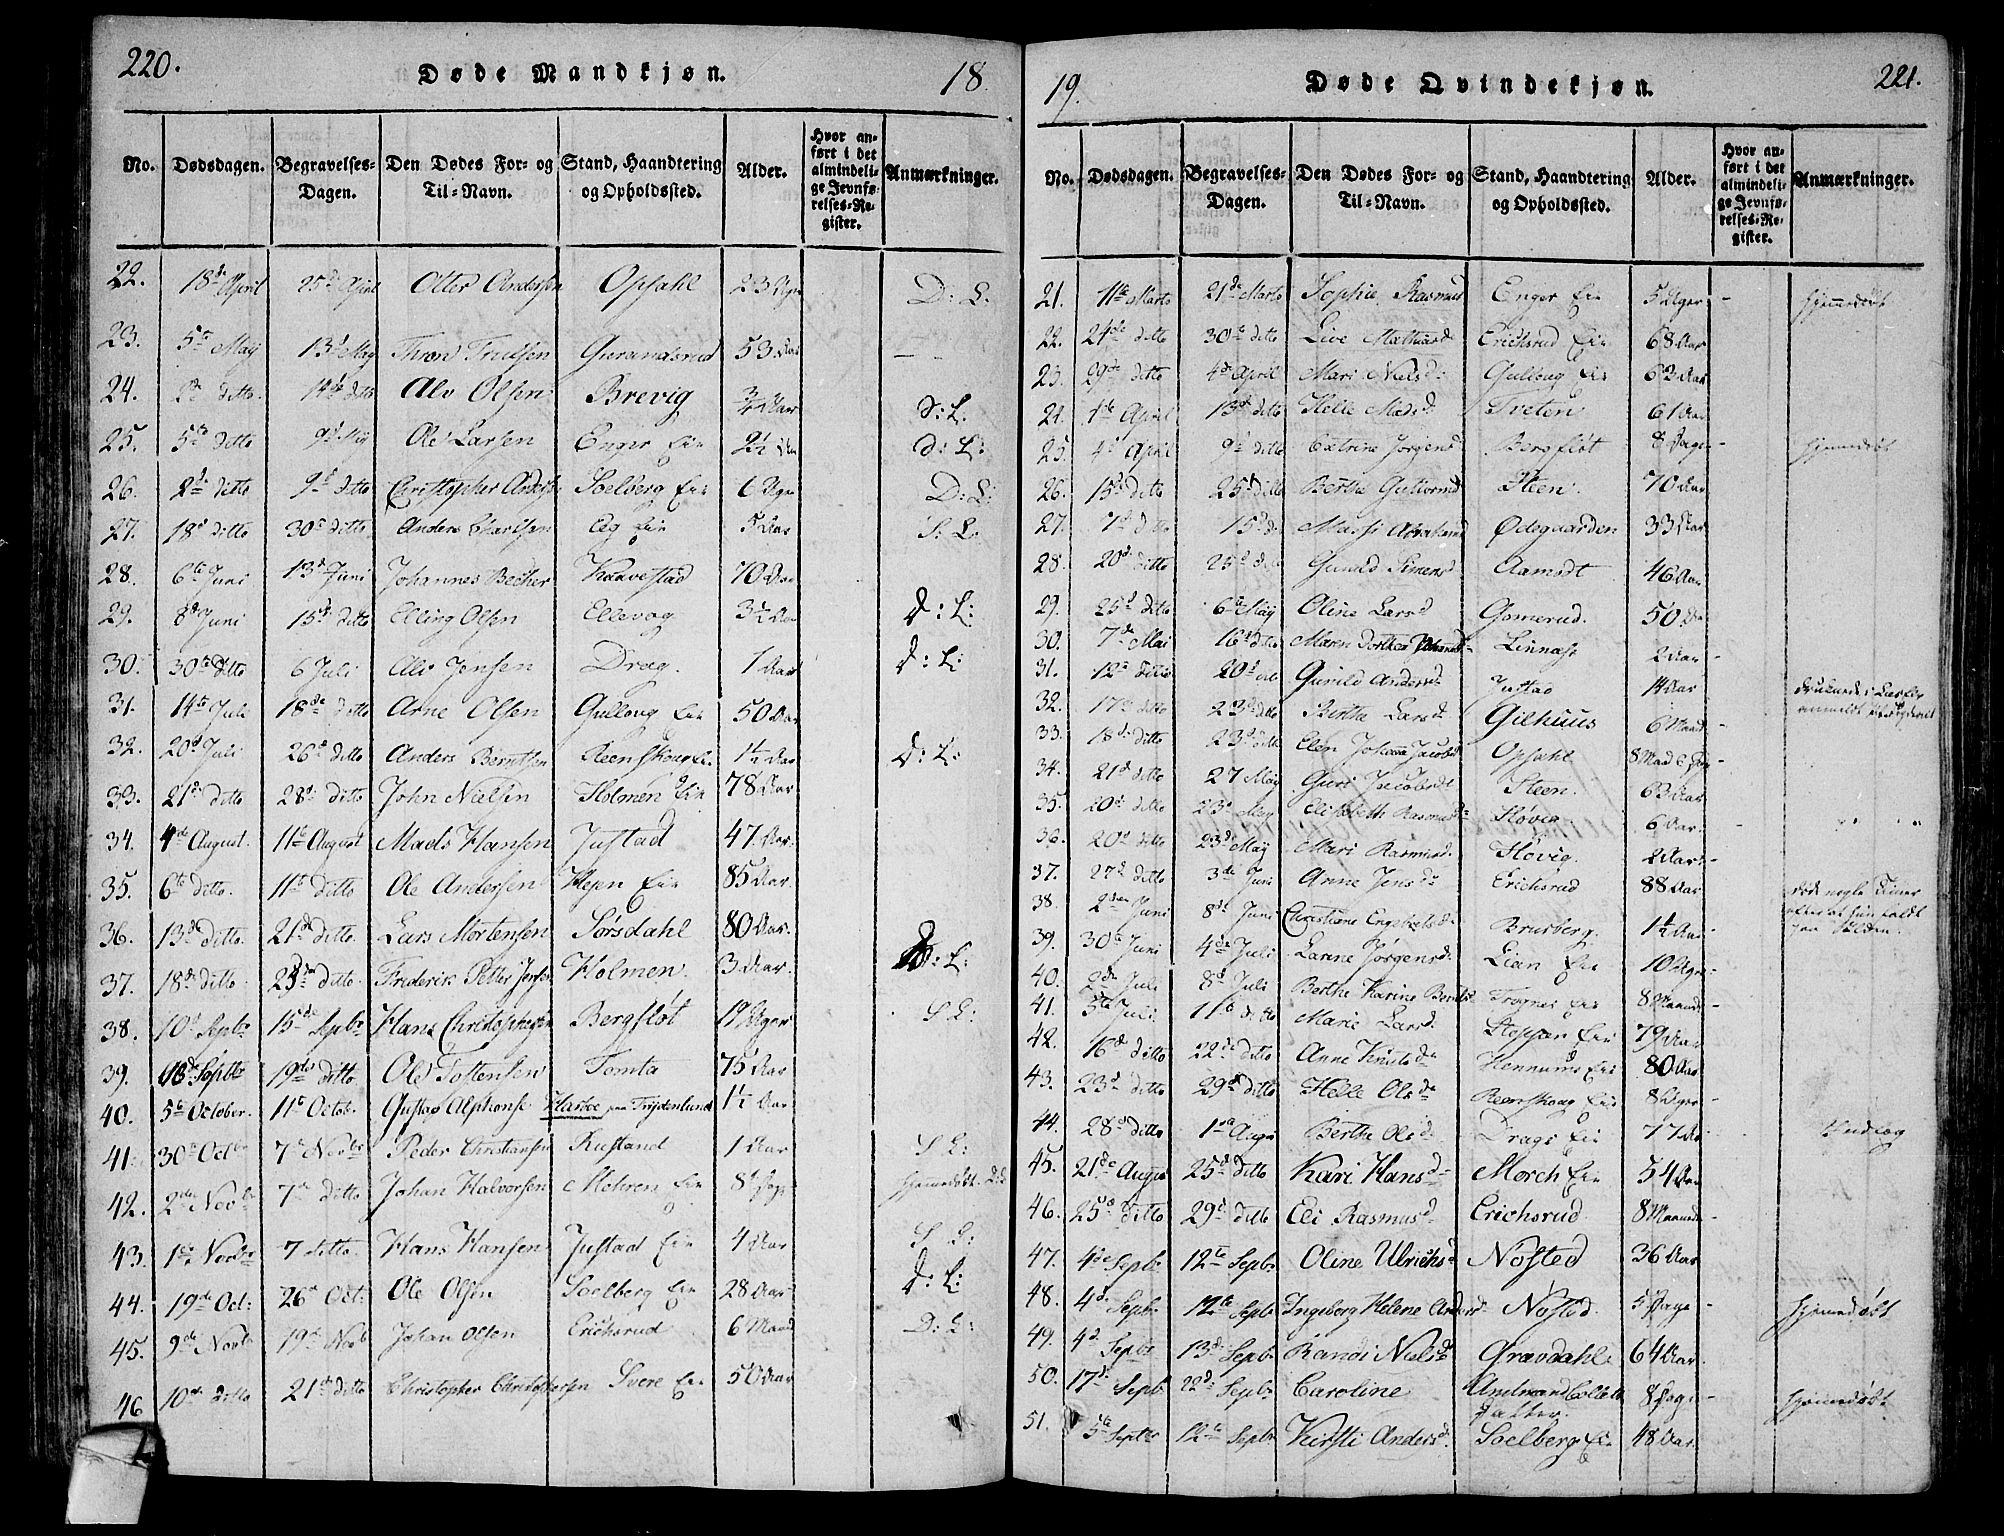 220.
Døde Mandkjøn.
18
No. Dødsdagen. Begravelses-Dagen. Den Dødes For- og Til-Navn. Stand, Haandtering og Opholdssted. Alder. Hvor anført i det almindelige Jevnførelses-Register. Anmærkninger.
22. 18de April 25de April Otter Andersen Opsahl 23 D: L:
23. 5te May 13d May Thron Truelsen 53 Aar — —
24. ditto 14de ditto Alv Olsen Brevig 3/4 Aar S: L:
25. 5te ditto 9d May Ole Larsen Enger Eie 2½ d: L:
26. 2de ditto 9d ditto Christopher Soelberg Eie D: L:
27. 18d ditto 30te ditto Anders Eeg Eie 5 Aar S: L:
28. 6te Juni 13d Juni Johannes Becher Kaavestad 70
29. 8d Juni 15d ditto Elling Olsen Ellevog 3½ D: L:
30. 30te ditto 6 Juli Jensen Drag. 1 Aar D: L:
31. 14te Juli 18de ditto Arne Olsen Gulloug Eie 50 Aar
32. 20d Juli 26d ditto Anders Berntsen Reenskoug Ei. 1½ Aar D: L:
33. 21d ditto 28d ditto John Nielsen Holmen Eie 78 Aar
34. 4de August. 11te August Mads Hansen Justad 47 Aar.
35. 6te ditto. 11te ditto Ole Andersen Eie 85 Aar.
36. 13d ditto. 21de ditto. Lars Mortensen Sørsdahl 80 Aar.
37. 18de ditto ditto. Frederik Petter Holmen. 3 Aar. D: L:
38. 10d Sepbr 15de Sepbr Hans Christophersen Bergfløt 19 Uger S L:
39. Septbr 19de ditto Ole Tostensen Tomta 75 Aar
40. 5te October. 11te Octob. Gustav Alphonse 1½ Aar
41. 30te Octbr 7de Novbr Peder Christiansen Rustand 1 Aar S L:
42. 2den Novbr 7de ditto Johan Halvorsen Mehren Eie 8 hjemmedøbt
43. 1te Novbr 7 ditto. Hans Hansen Justad Eie 4 Aar S L:
44. 19de Oct: 26de Oct: Ole Olsen Soelberg Eie 28 Aar D: L:
45. 9de Novbr 19de Novb Johan Olsen Erichsrud 6 Maand D: L:
46 10de ditto 21de ditto Christopher Christophersen Svere Eie 50 Aar
19.
Døde Qvindekjøn.
221.
No. Dødsdagen. Begravelses-Dagen. Den Dødes For- og Til-Navn. Stand, Haandtering og Opholdssted. Alder. Hvor anført i det almindelige Jevnførelses-Register. Anmærkninger.
21. 11te Marts 21de Marts Sophie Rasmusd Enger Eie 5 Uger hjemmedøbt
22. 24de ditto 30te ditto Live Erichsrud Eie 68 Aar
23. 29de ditto 4de April Mari Nielsd: Gulloug Eie Aar
24. 1te April 13de ditto Helle Madsd Tveten 61 Aar
25. 4d April 9d ditto Catrine Jørgensd Bergfløt 8 Dage hjemmedøbt
26. 15d ditto 25d ditto Berthe Guttormsd Steen. 70 Aar
27. 7d ditto 15d d: Ødegaarden 33 Aar
28. 20d ditto 25d ditto Gunild Simensd Aamodt 46 Aar
29. 25d ditto 6te May Oline Larsd Gomerud. 50
30. 7de Mai 16d ditto Maren Dorthea Linnæs 2 Aar
31. 12te ditto 20d ditto Gunild Andersd Justad 14 Aar
32. 17de ditto 23d ditto Berthe Larsd Gilhuus 6 Maad
33. 18d ditto 23d ditto Elen Johanna Jacobsd Opsahl 8 Maad
34. 21d ditto 27 May Guri Jacobsd Steen. 63 Aar
35. 20d ditto 23d May Elisabeth Rasmusd Høvig 6 Aar.
36. 20d ditto 23d May Mari Rasmusd: Høvig. 2 Aar
37. 27d ditto 3de Juni Anne Jensd Erichsrud 88 Aar døde nogle Timer efter at hun faldt
38. 2den Juni 8de Juni Christiane Engebretsd: Brusberg. 1½ Aar
39. 30te Juni 4de Juli Jørgensd. Lian Eie 10 Uger
40. 2de Juli 8d Juli Berthe Karine Eie 8 Maand
41. 5te Juli 11te ditto Marie Larsd: Stoppen Eie 79 Aar
42. 16d ditto 22de ditto Anne Knudsd Hennums Eie 80 Aar
43. 23d ditto 29d ditto Helle Olsd Reenskoug Eie 8 Uger
44. 28d ditto 1ste Aug: Berthe Olsd: Drags Eie 77
45. 21de August 25d ditto Kari Hansd Morch Eie 54
46. 25d ditto 29d ditto Eli Rasmusd Erichsrud 8 Maand
47. 4de Sepbr 12te Sepbr Oline Ulrichsd Nøsted 36 Aar
48. 4d Sepbr 12te Sepbr Ingeborg Helene Andersd Nøsted. 5 Dage hjemmedøbt
49. 4d Sepbr 13d Sepbr Randi Nielsd Gravdahl 64 Aar.
50. 17d Sepbr 22d Sepbr Caroline Amtmand Collett Datter. 8 Dage hjemmedøbt
51. 5te Septbr 12te Sepbr Kirsti Andersd. Soelberg Eie 48 Aar.